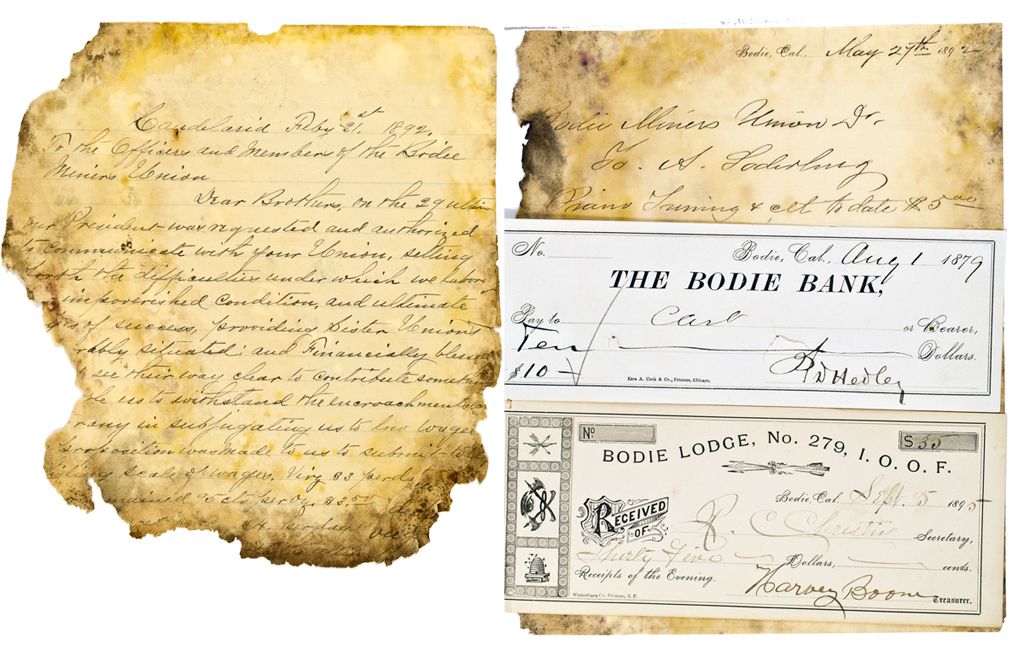 Candelaria Feby 21st 1892.
To the Officers and Members of the Bodie
Miners Union
Dear Brothers, on the 29 ultim
President was requested and authorized
to communicate with your Union, setting
forth the difficulties under which we labor
impoverished condition, and ultimate
of success, providing Sister Unions
situated; and Financially blessed
see their way clear to contribute
us to withstand the encroachments
in subjugating us to low wages
proposition was made to us to submit to
scale of wages. Viz, $3 per day
Bodie, Cal., May 27th 1892
Bodie Miners Union Dr.
To A. Soderling
Piano Tuning & to date $5 00
No.
Bodie, Cal., Aug 1 1879
THE BODIE BANK,
Pay to Cash or Bearer,
Ten Dollars.
$10 -
Ezra A. Cook & Co., Printers, Chicago.
Hedley
No
$ 35
BODIE LODGE, No. 279, I. O. O. F.
Bodie, Cal. Sept. 5 1895
RECEIVED OF R. C. Secretary,
Thirty Five Dollars, cents.
Receipts of the Evening.
Harvey Boone Treasurer.